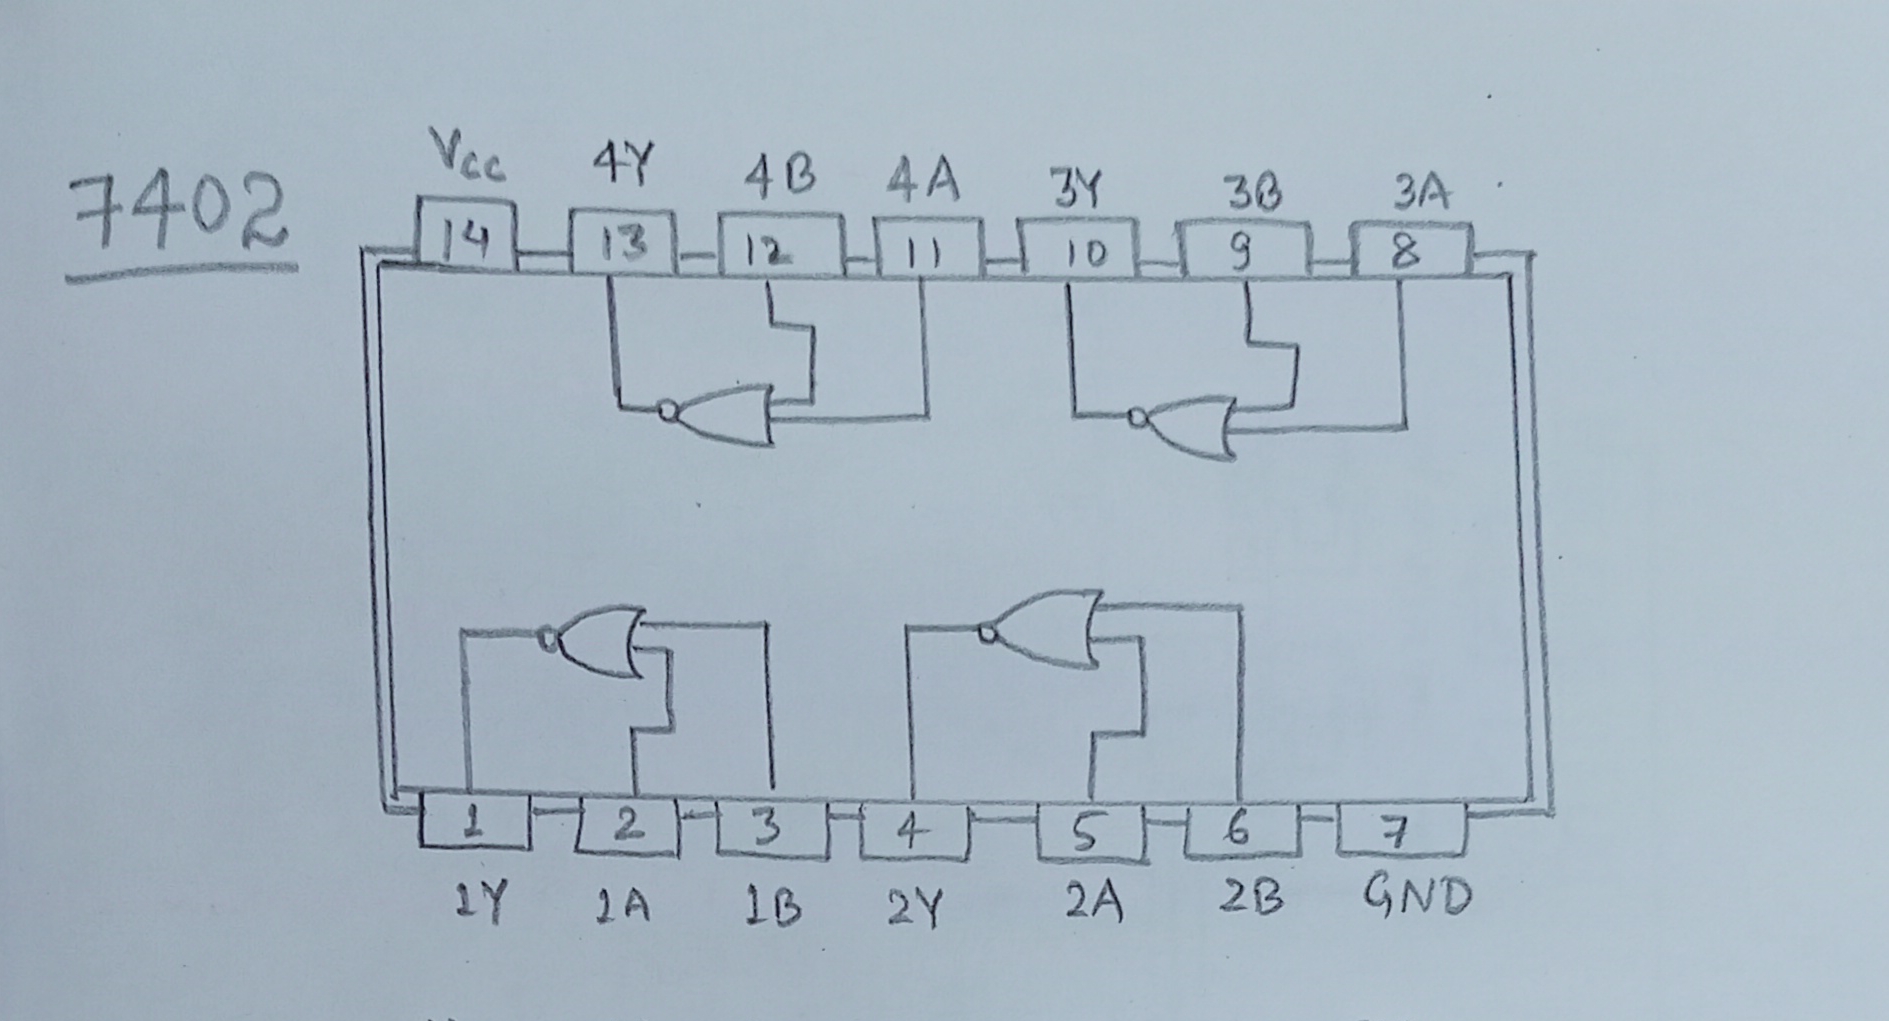 7402
Vcc 4Y 4B 4A 3Y 3B 3A
14 13 12 11 10 9 8
1 2 3 4 5 6 7
1Y 1A 1B 2Y 2A 2B GND